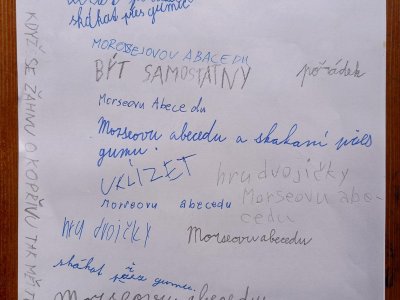 skákat přes gumu.
MOROSEJOVOU ABACEDU
BÝT SAMOSTATNÝ
pořádek
Morseovu Abecedu
Morseovu abecedu a skakaní přes
gumu.
UKLÍZET
hru dvojičky
Morseovu abe-
cedu
Morseovu abecedu
hru dvojičky
Morseovu abecedu
skákat přes gumu.
Morseovu abecedu
KDYŽ SE ZÁHNU O KOPĚNU TAK MĚ